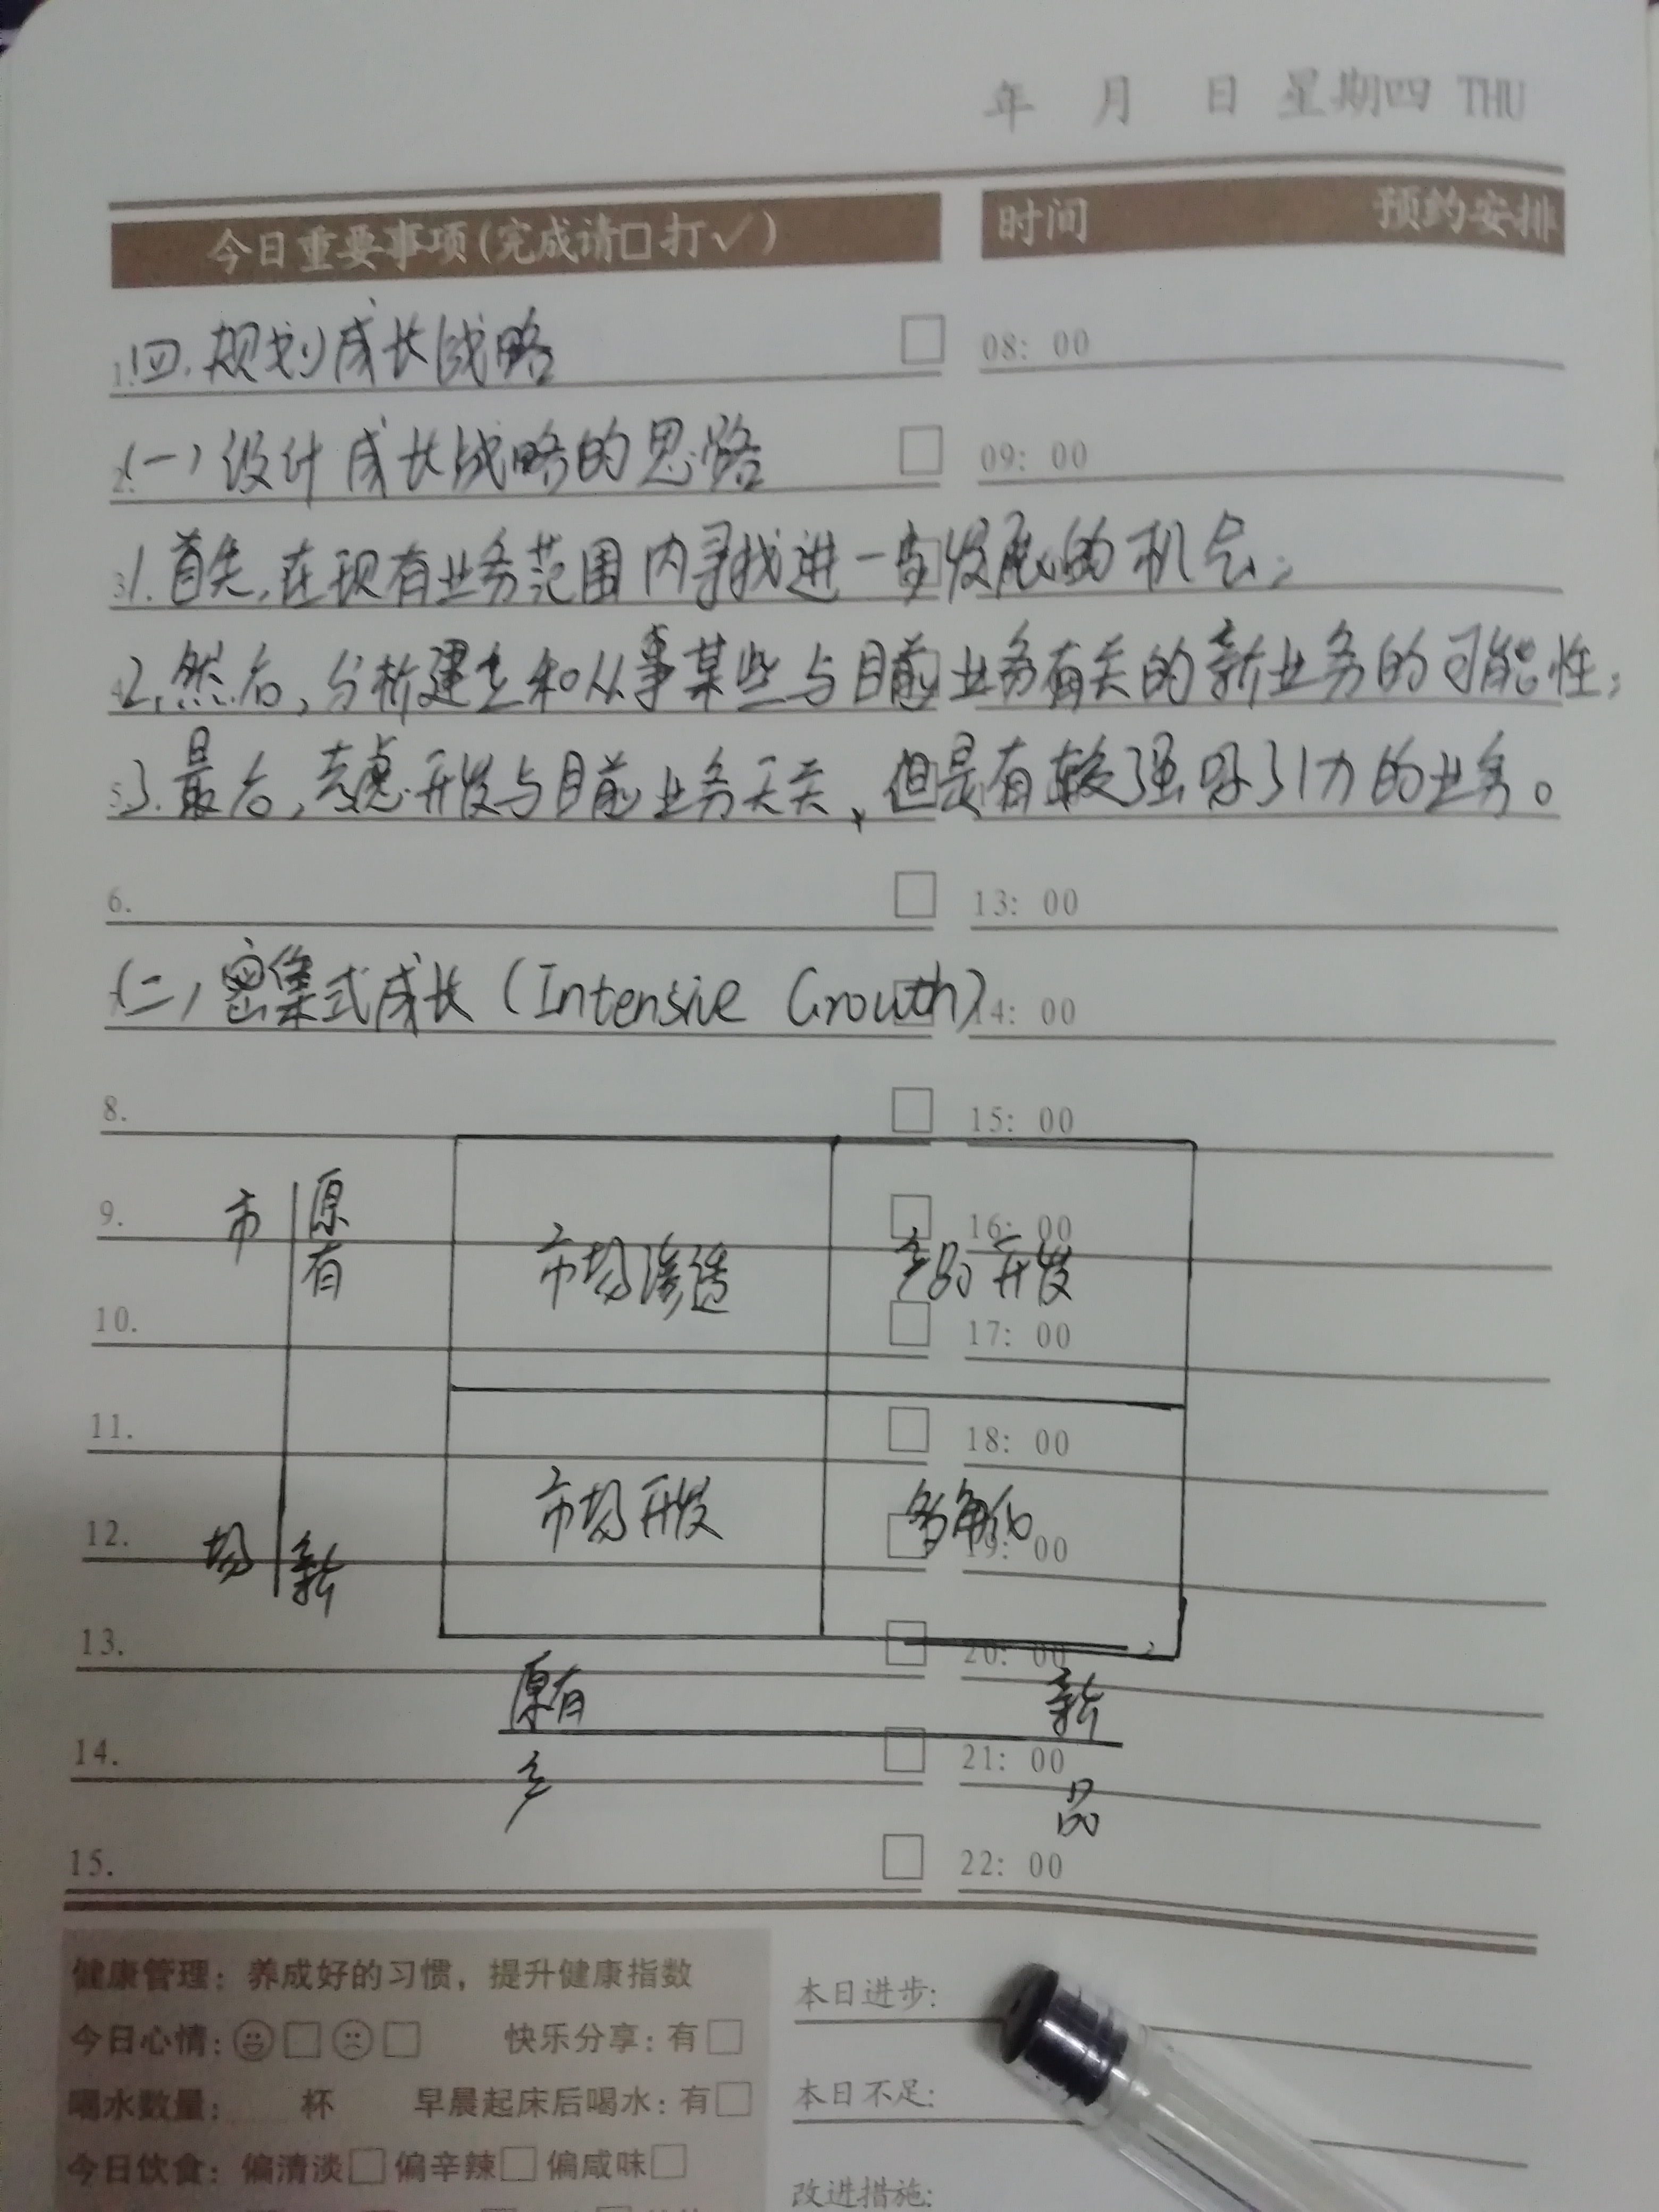 年 月 日 星期四 THU
今日重要事项(完成请□打✓) 时间 预约安排
1. 四、规划成长战略 □ 08: 00
2. (一)设计成长战略的思路 □ 09: 00
3. 1. 首先,在现有业务范围内寻找进一步发展的机会;
4. 2. 然后,分析建立和从事某些与目前业务有关的新业务的可能性;
5. 3. 最后,考虑开发与目前业务无关、但是有较强吸引力的业务。
6. □ 13: 00
(二)密集式成长(Intensive Growth) 14: 00
8. □ 15: 00
9. 市 原有 □ 16: 00
市场渗透 产品开发
10. □ 17: 00
11. □ 18: 00
市场开发 多角化
12. 场 新 □ 19: 00
13. □ 20: 00
原有 新
14. □ 21: 00
产 品
15. □ 22: 00
健康管理: 养成好的习惯, 提升健康指数
今日心情: □ □ 快乐分享: 有□
喝水数量: 杯 早晨起床后喝水: 有□
今日饮食: 偏清淡□偏辛辣□偏咸味□
本日进步:
本日不足:
改进措施: